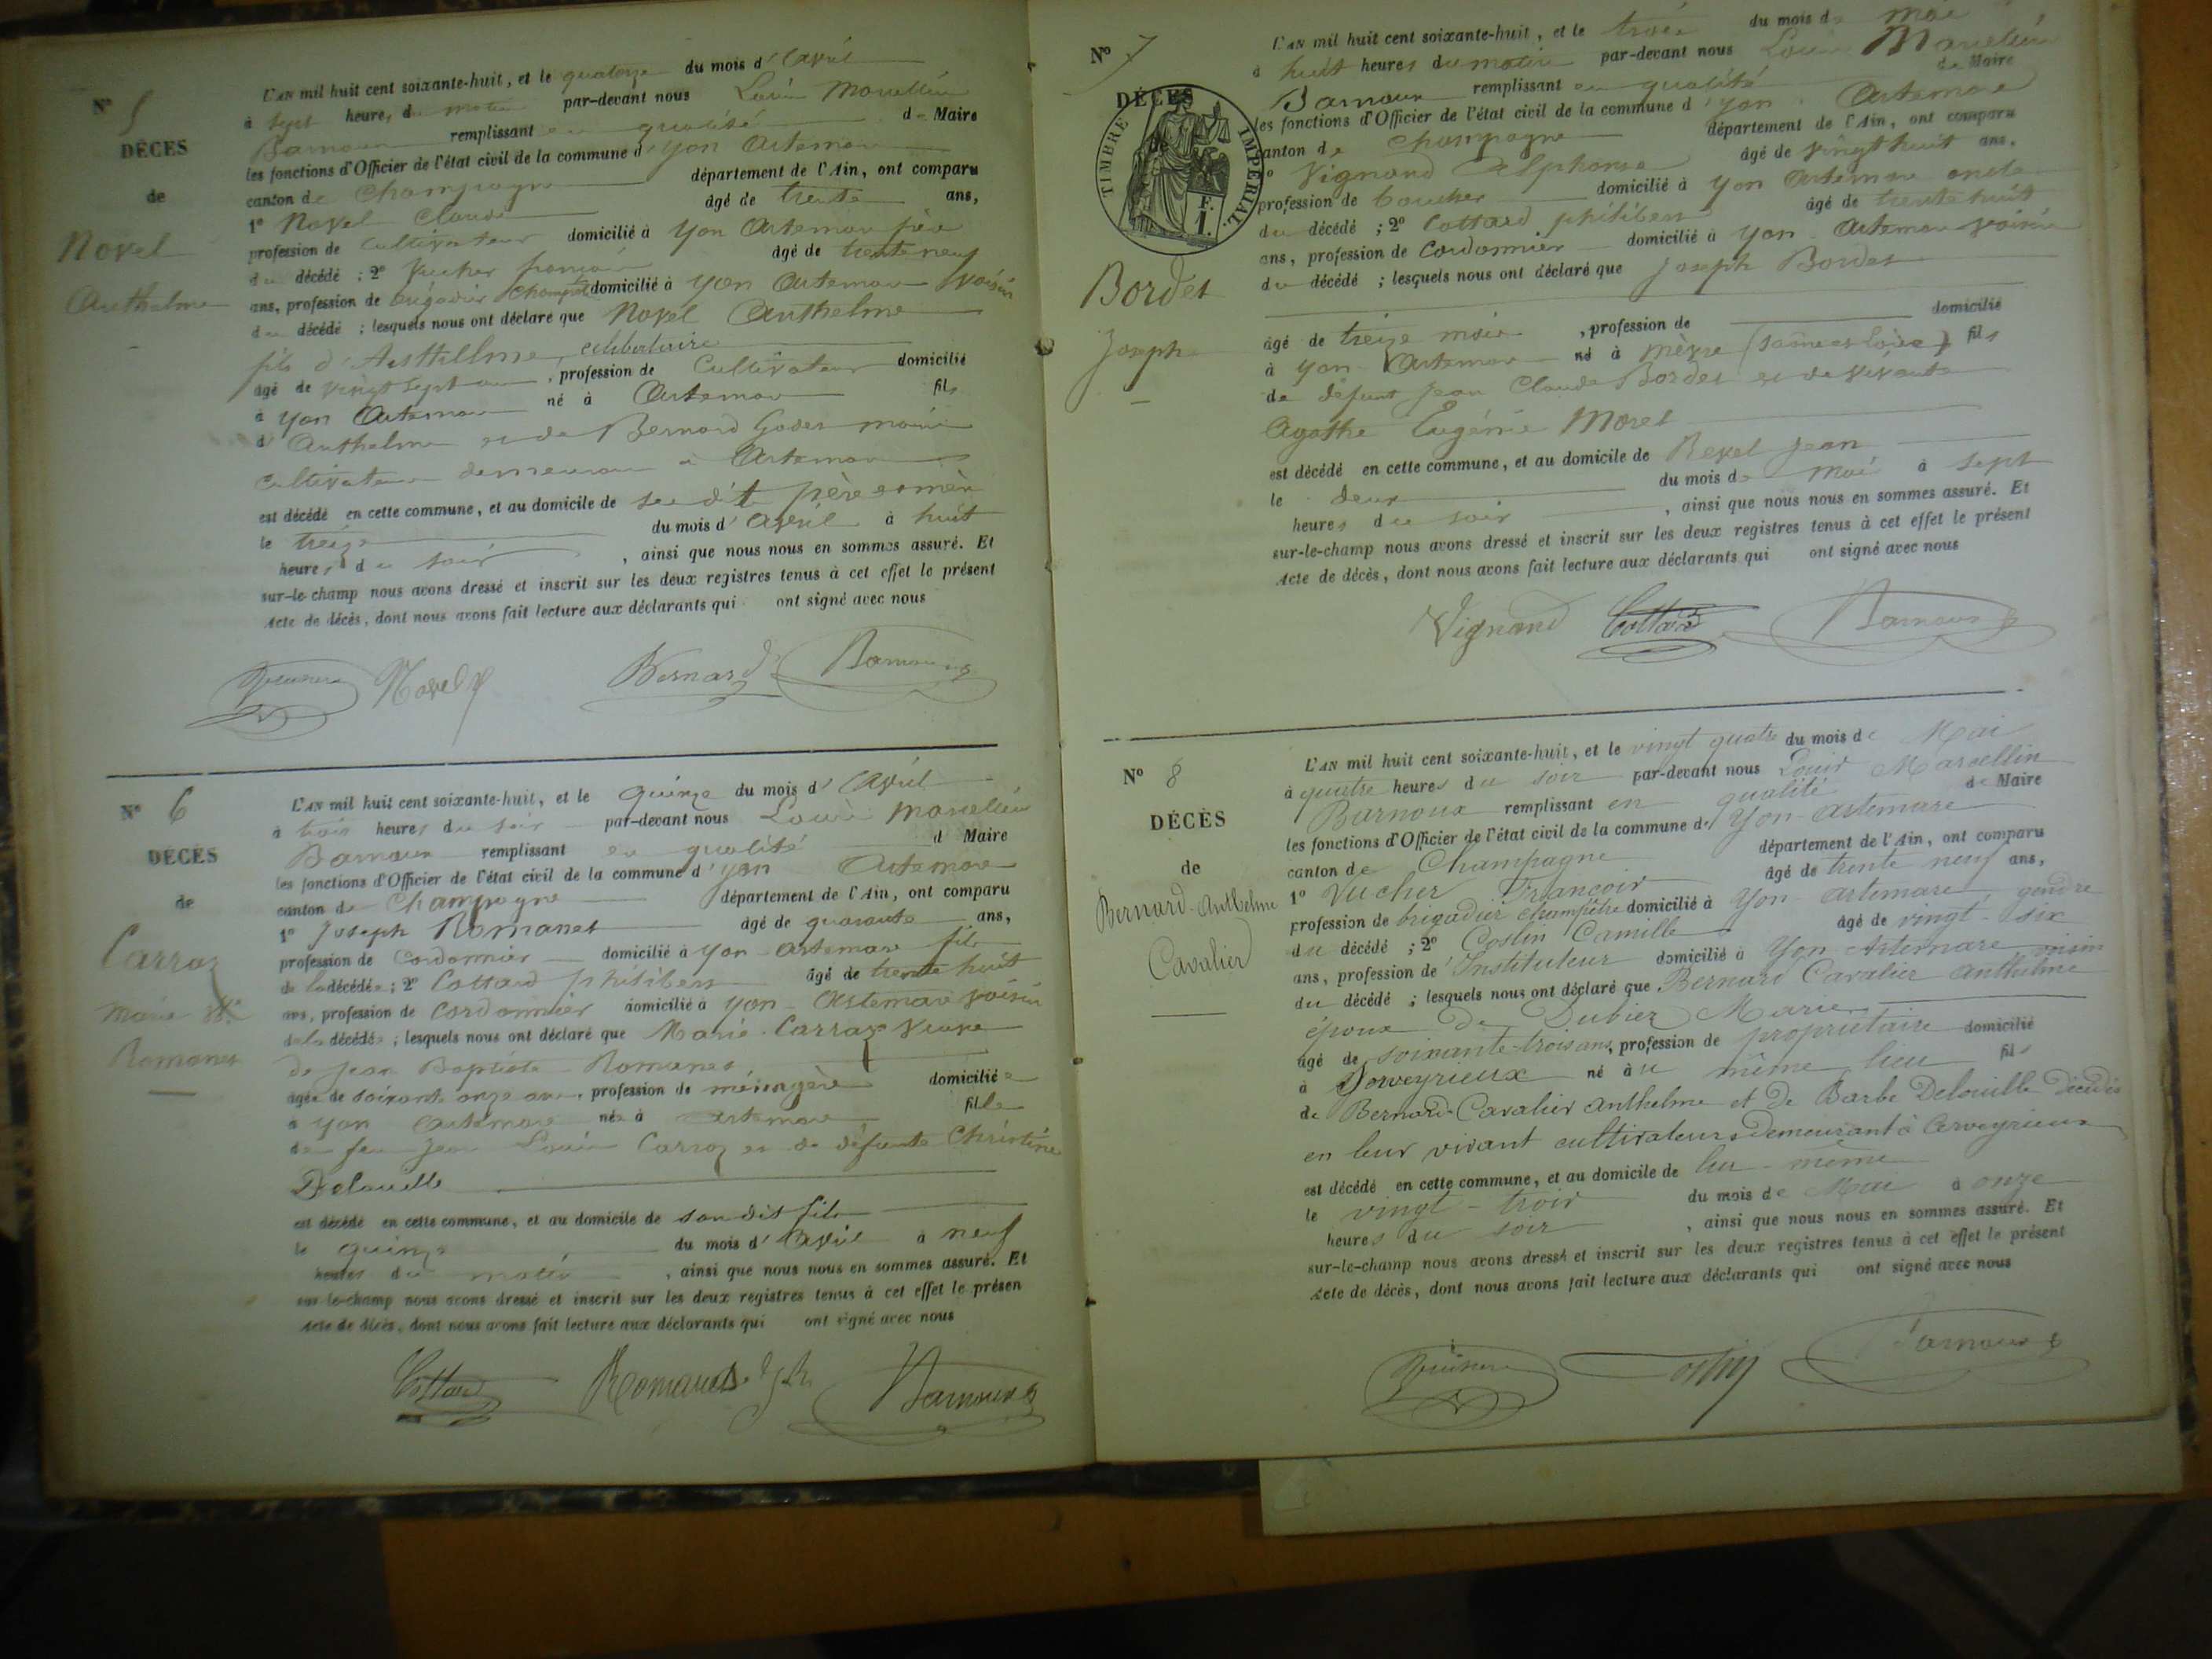 N° 5
DÉCES
de
Novel
Anthelme
L'AN mil huit cent soixante-huit, et le quatorze du mois d'avril
à sept heures du matin par-devant nous Louis Marcellin
Barnoux remplissant en qualité de Maire
les fonctions d'Officier de l'état civil de la commune d'yon Artemare
canton de Champagne département de l'Ain, ont comparu
1° Novel Claude âgé de trente ans,
profession de cultivateur domicilié à Yon Artemare
du décédé ; 2° Vucher françois âgé de trente neuf
ans, profession de brigadier champêtre domicilié à Yon Artemare voisin
du décédé ; lesquels nous ont déclaré que Novel Anthelme
célibataire
âgé de vingt sept ans, profession de Cultivateur domicilié
à Yon Artemare né à Artemare fils
d'Anthelme et de Bernard
cultivateurs demeurant à Artemare
est décédé en cette commune, et au domicile de père et mère
le treize du mois d'avril à huit
heures du soir, ainsi que nous nous en sommes assuré. Et
sur-le-champ nous avons dressé et inscrit sur les deux registres tenus à cet effet le présent
Acte de décès, dont nous avons fait lecture aux déclarants qui ont signé avec nous
Novel Bernard Barnoux
N° 6
DÉCES
de
Carraz
Marie
Romanet
L'AN mil huit cent soixante-huit, et le quinze du mois d'avril
à trois heures du soir par-devant nous Louis Marcellin
Barnoux remplissant en qualité d Maire
les fonctions d'Officier de l'état civil de la commune d'yon Artemare
canton de Champagne département de l'Ain, ont comparu
1° Joseph Romanet âgé de quarante ans,
profession de Cordonnier domicilié à Yon-Artemare fils
de la décédée ; 2° Cottard philibert âgé de trente huit
ans, profession de Cordonnier domicilié à Yon-Artemare voisin
de la décédée ; lesquels nous ont déclaré que Marie Carraz Veuve
de Jean Baptiste Romanet
âgée de soixante onze ans, profession de ménagère domiciliée
à Yon Artemare née à Artemare fille
de feu Jean Louis Carraz et de défunte Christine
Delouille
est décédé en cette commune, et au domicile de son dit fils
le quinze du mois d'Avril à neuf
heures du matin, ainsi que nous nous en sommes assuré. Et
sur-le-champ nous avons dressé et inscrit sur les deux registres tenus à cet effet le présen
Acte de décès, dont nous avons fait lecture aux déclarants qui ont signé avec nous
Cottard Romanet Barnoux
N° 7
DÉCES
de
TIMBRE IMPÉRIAL
F.
1.
Bordet
Joseph
L'AN mil huit cent soixante-huit, et le trois du mois de mai
à huit heures du matin par-devant nous Louis Marcellin
Barnoux remplissant en qualité de Maire
les fonctions d'Officier de l'état civil de la commune d'yon Artemare
canton de Champagne département de l'Ain, ont comparu
1° Vignand Alphonse âgé de vingt huit ans,
profession de boucher domicilié à Yon Artemare oncle
du décédé ; 2° Cottard philibert âgé de trente huit
ans, profession de Cordonnier domicilié à Yon-Artemare voisin
du décédé ; lesquels nous ont déclaré que Joseph Bordet
âgé de treize mois, profession de domicilié
à Yon-Artemare né à Mèvre (Saône et Loire) fils
de défunt Jean Claude Bordet et de vivante
Agathe Eugénie Morel
est décédé en cette commune, et au domicile de Revel Jean
le deux du mois de Mai à sept
heures du soir, ainsi que nous nous en sommes assuré. Et
sur-le-champ nous avons dressé et inscrit sur les deux registres tenus à cet effet le présent
Acte de décès, dont nous avons fait lecture aux déclarants qui ont signé avec nous
Vignand Cottard Barnoux
N° 8
DÉCÈS
de
Bernard-Anthelme
Cavalier
L'AN mil huit cent soixante-huit, et le vingt quatre du mois de Mai
à quatre heures du soir par-devant nous Louis Marcellin
Barnoux remplissant en qualité de Maire
les fonctions d'Officier de l'état civil de la commune d'Yon-Artemare
canton de Champagne département de l'Ain, ont comparu
1° Vucher François âgé de trente neuf ans,
profession de brigadier champêtre domicilié à Yon-artemare, gendre
du décédé ; 2° Costin Camille âgé de vingt-six
ans, profession de Instituteur domicilié à Yon-Artemare voisin
du décédé ; lesquels nous ont déclaré que Bernard Cavalier Anthelme
époux de Dubiez Marie
âgé de soixante-trois ans, profession de propriétaire domicilié
à Cerveyrieux né au même lieu fils
de Bernard-Cavalier anthelme et de Barbe Delouille décédés
en leur vivant cultivateurs demeurant à Cerveyrieux
est décédé en cette commune, et au domicile de lui-même
le vingt-trois du mois de Mai à onze
heures du soir, ainsi que nous nous en sommes assuré. Et
sur-le-champ nous avons dressé et inscrit sur les deux registres tenus à cet effet le présent
Acte de décès, dont nous avons fait lecture aux déclarants qui ont signé avec nous
Costin Barnoux